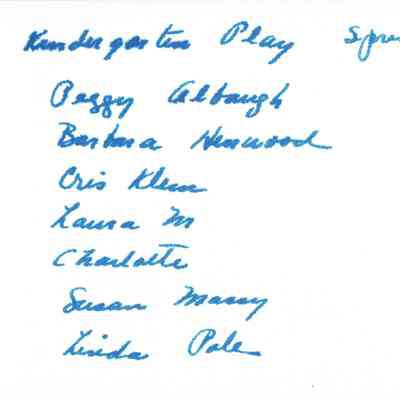 Kindergarten Play
Peggy Albaugh
Barbara Henwood
Cris Klem
Laura M
Charlotte
Susan Massy
Linda Pole